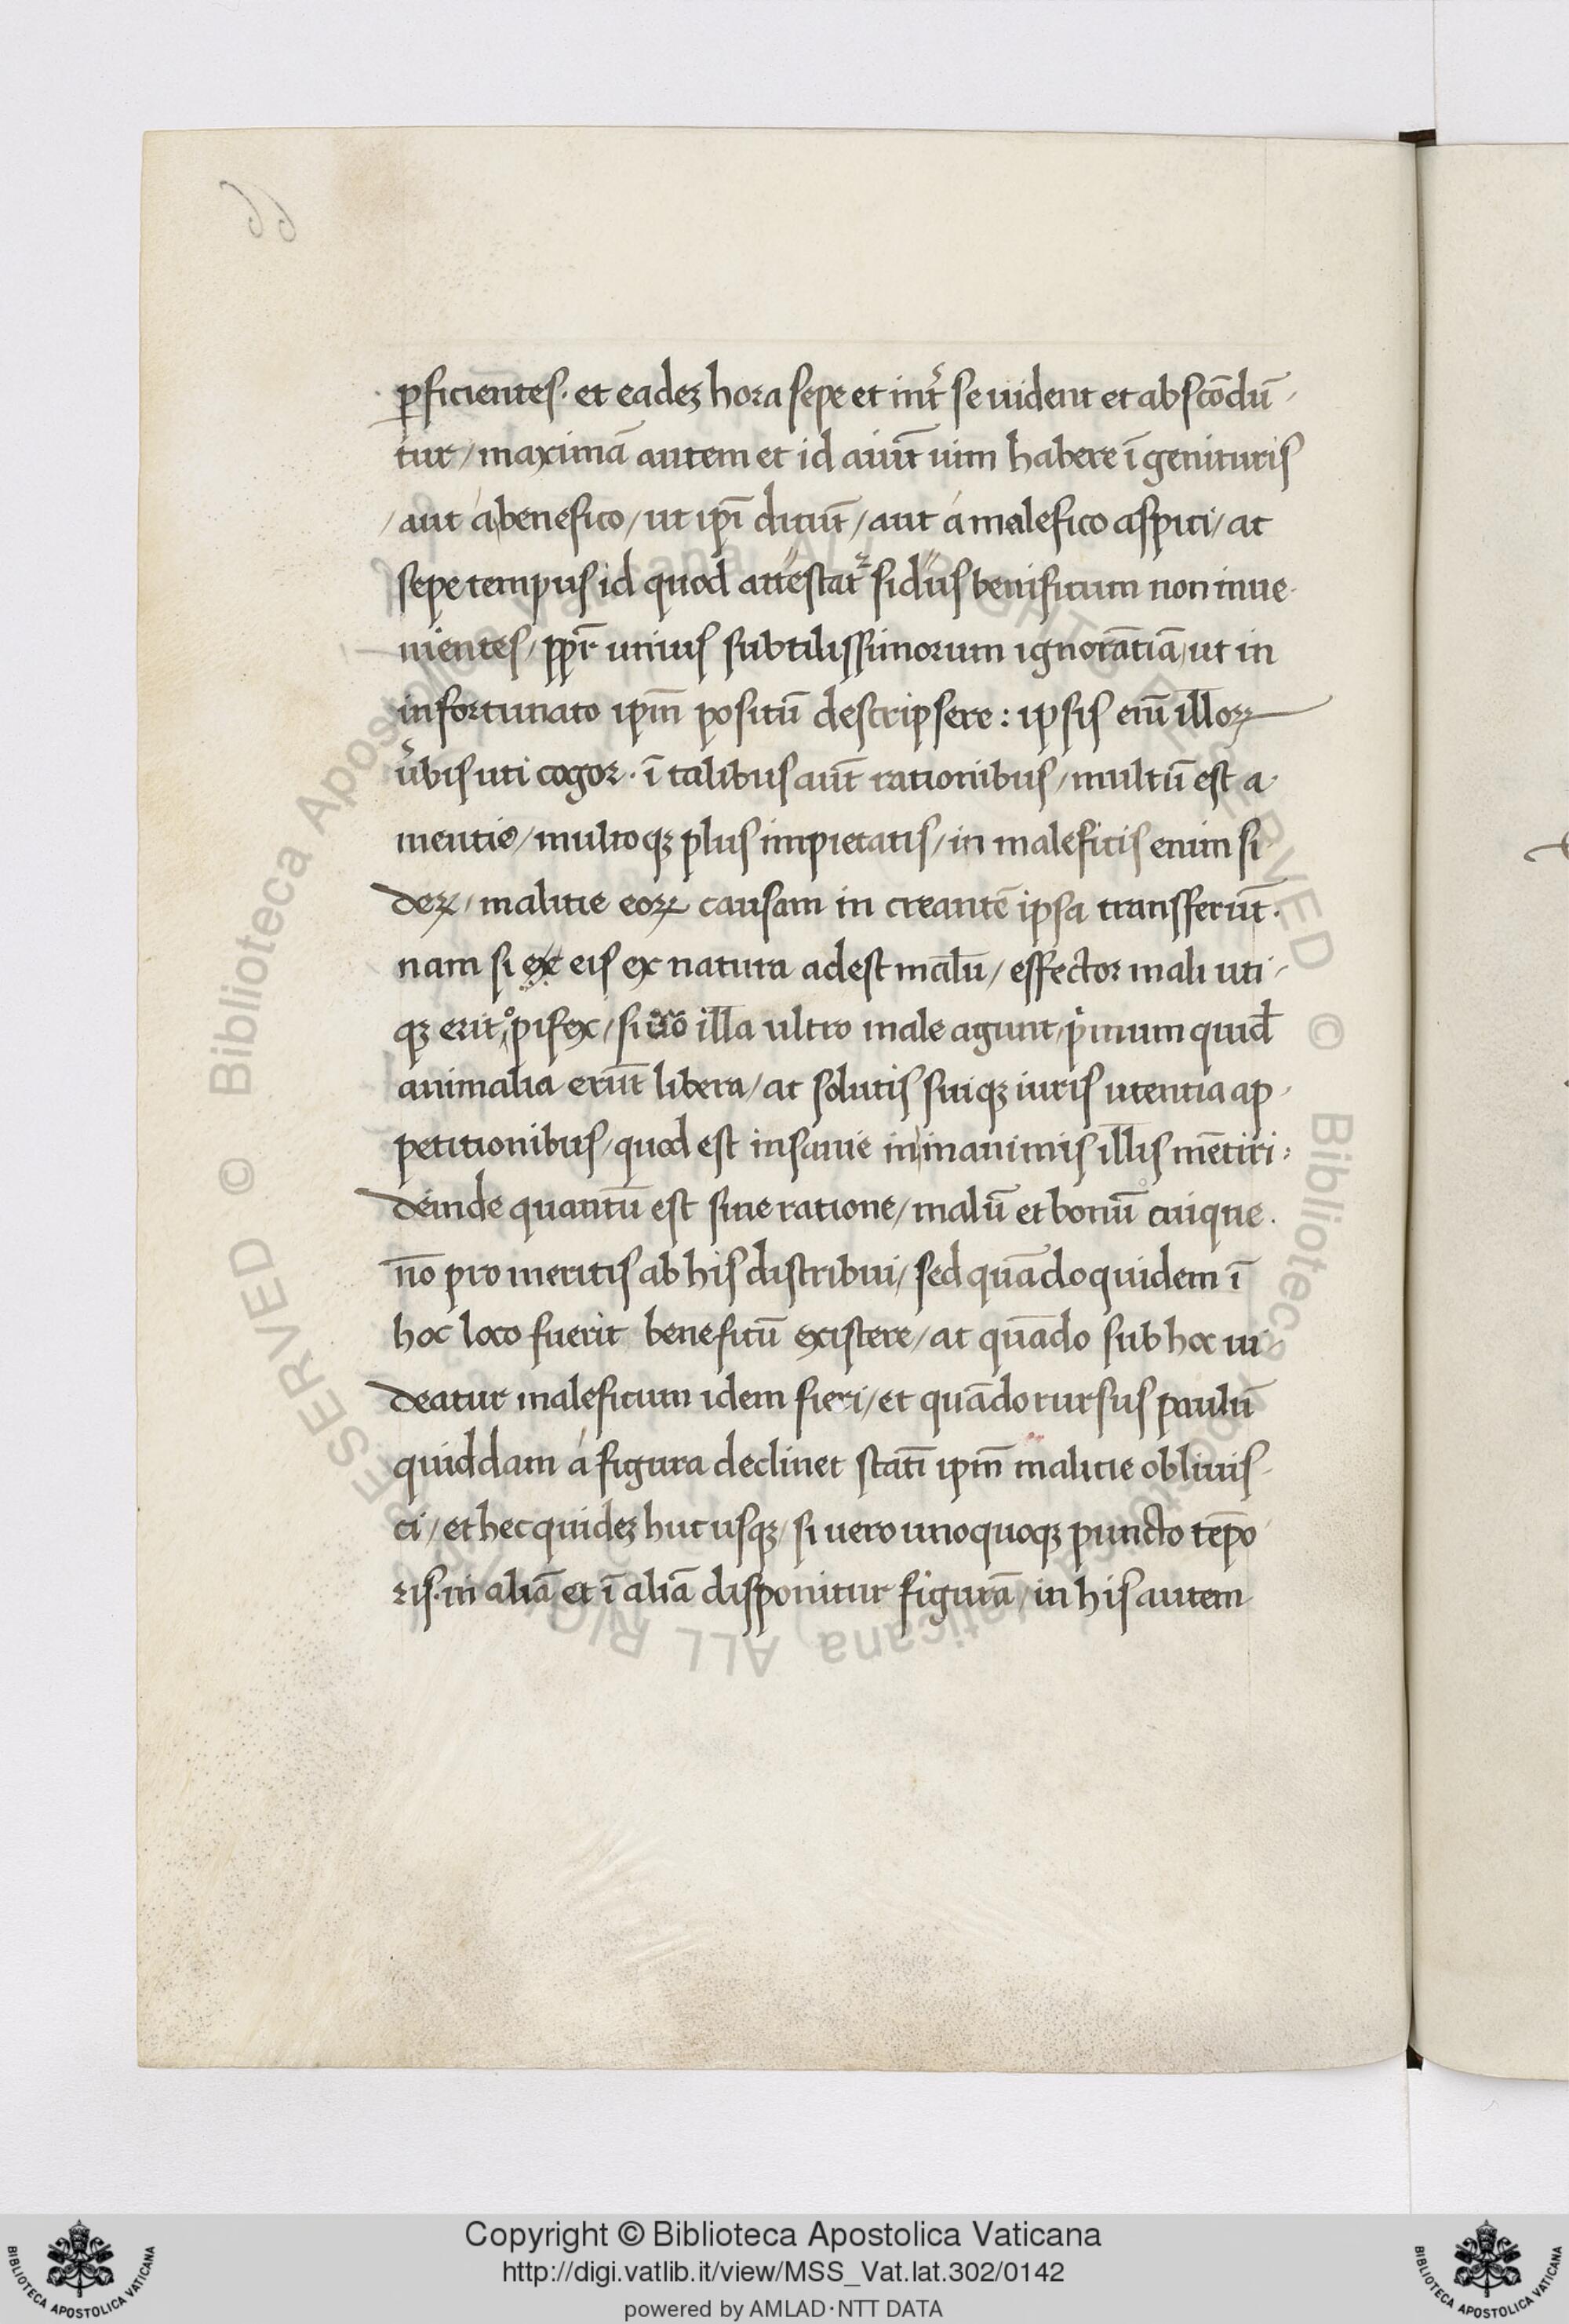 66
ꝑficientes· et eadeꝫ hora sepe et int̉ se uident et abscōdū
tur/ maximā autem et id aiūt uim habere ī genituris
/aut á benefico/ ut ipī dicūt/ aut á malefico aspici/ at
sepe tempus id quod attestat᷑ sidus benificum non inue
nientes/ ꝓpr̄ unius subtilissimorum ignorātiā/ ut in
infortunato ipm̄ positū descripsere: ipsis enī illoꝝ
u̓bis uti cogor· ī talibus aūt rationibus/ multū est a
mentie/ multoqꝫ plus impietatis/ in maleficis enim si
deꝝ/ malitie eoꝝ causam in creantē ipsa transferūt·
nam si ex eis ex natura adest malū/ effector mali uti
qꝫ erit opifex/ si uō illa ultro male agunt/ p̓mum quid̄
animalia erūt libera/ at solutis suiqꝫ iuris utentia ap
petitionibus/ quod est insanie in inanimis illis mētiri
deinde quantū est sine ratione/ malū et bonū cuique
nō pro meritis ab his distribui/ sed quādoquidem ī
hoc loco fuerit beneficū existere/ at quādo sub hoc ui
deatur maleficum idem fieri/ et quādo rursus paulū
quiddam á figura declinet statī ipm̄ malitie obliuis
ci/ et hec quideꝫ huc usqꝫ/ si uero unoquoqꝫ puncto tēpo
ris· in aliā et ī aliā disponitur figurā/ in his autem
Copyright © Biblioteca Apostolica Vaticana
http://digi.vatlib.it/view/MSS_Vat.lat.302/0142
powered by AMLAD·NTT DATA